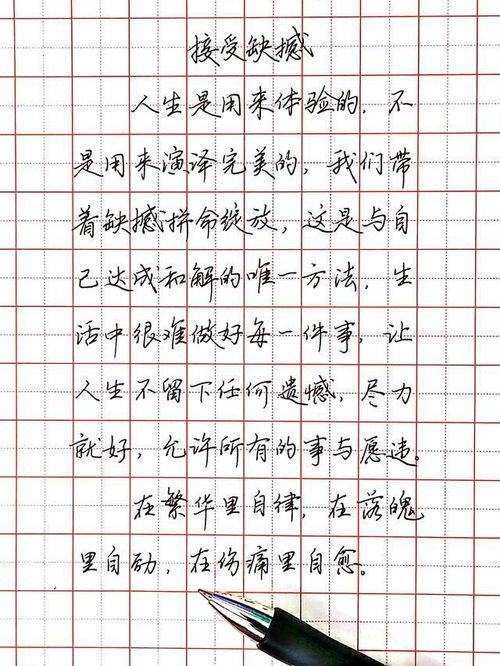 接受缺撼
人生是用来体验的.不
是用来演译完美的,我们带
着缺撼拼命绽放,这是与自
己达成和解的唯一方法.生
活中很难做好每一件事,让
人生不留下任何遗憾,尽力
就好,允许所有的事与愿违。
在繁华里自律,在落魄
里自励,在伤痛里自愈。